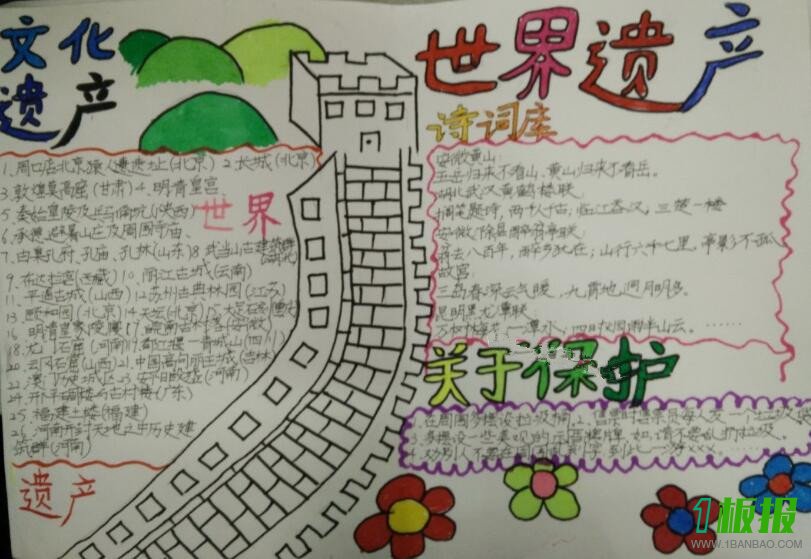 文化
遗产
1.周口店北京猿人遗址(北京) 2.长城(北京)
3.敦煌莫高窟(甘肃)4.明清皇宫
5.秦始皇陵及兵马俑坑(陕西)
6.承德避暑山庄及周围寺庙
7.曲阜孔府、孔庙、孔林(山东)8.武当山古建筑群
9.布达拉宫(西藏)10.丽江古城(云南)
11.平遥古城(山西)12.苏州古典园林(江苏)
13.颐和园(北京)14.天坛(北京)15.大足石刻(重庆)
16.明清皇家陵寝17.皖南古村落(安徽)
18.龙门石窟(河南)19.都江堰—青城山(四川)
20.云冈石窟(山西)21.中国高句丽王城(吉林
22.澳门历史城区23.安阳殷墟(河南)
24.开平碉楼与古村落(广东)
25.福建土楼(福建)
26.河南开封天地之中历史建
筑群(河南)
世界
遗产
世界遗产
诗词库
安徽黄山:
五岳归来不看山、黄山归来不看岳。
湖北武汉黄鹤楼联
搁笔题诗,两千古;临江吞汉,三楚一楼
安徽滁县醉翁亭联
翁去八百年,醉乡犹在;山行六七里,亭影不孤
故宫
三岛春深云气暖,九霄地迥月明多。
昆明黑龙潭联
一潭水;四时烟雨半山云。……
关于保护
1.在周围多摆设垃圾桶,2.售票时售票员每人发一个垃圾袋
3.多摆设一些美观的示牌,如:请不要乱扔垃圾。
4.劝别人不要在周围刻字"到此一游×××。……
1板报
WWW.1BANBAO.COM